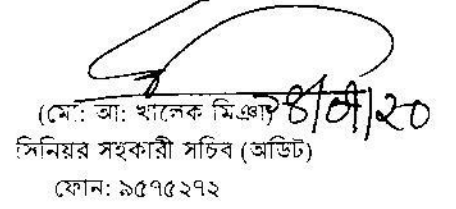 (মো: আ: খালেক মিঞা)
সিনিয়র সহকারী সচিব (অডিট)
ফোন: ৯৫৭৫২৭২